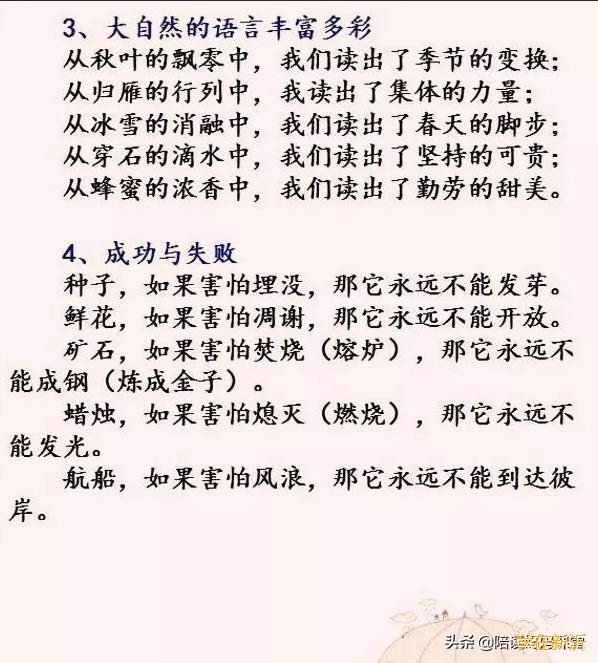 3、大自然的语言丰富多彩
从秋叶的飘零中，我们读出了季节的变换；
从归雁的行列中，我读出了集体的力量；
从冰雪的消融中，我们读出了春天的脚步；
从穿石的滴水中，我们读出了坚持的可贵；
从蜂蜜的浓香中，我们读出了勤劳的甜美。
4、成功与失败
种子，如果害怕埋没，那它永远不能发芽。
鲜花，如果害怕凋谢，那它永远不能开放。
矿石，如果害怕焚烧（熔炉），那它永远不
能成钢（炼成金子）。
蜡烛，如果害怕熄灭（燃烧），那它永远不
能发光。
航船，如果害怕风浪，那它永远不能到达彼
岸。
头条 @陪
学在新浙